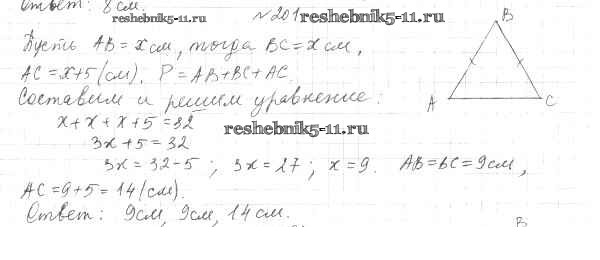 Ответ: 8 см.
www.reshebnik5-11.ru
№ 201 reshebnik5-11.ru
Пусть AB = x см, тогда BC = x см,
AC = x+5 (см). P = AB+BC+AC.
Составим и решим уравнение:
B
A C
x + x + x + 5 = 32
reshebnik5-11.ru
3x + 5 = 32
3x = 32-5 ; 3x = 27 ; x = 9. AB = BC = 9 см,
AC = 9+5 = 14 (см).
Ответ: 9 см, 9 см, 14 см.
B